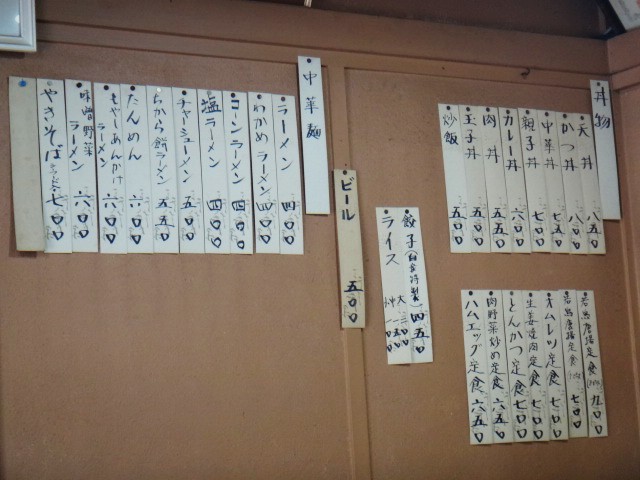 丼物
天丼 八五〇
かつ丼 八〇〇
中華丼 七五〇
親子丼 七〇〇
カレー丼 六〇〇
肉丼 五五〇
玉子丼 五五〇
炒飯 五〇〇
中華麺
ラーメン 四〇〇
わかめラーメン 四〇〇
コーンラーメン 四〇〇
塩ラーメン 四〇〇
チャーシューメン 五〇〇
ちから餅ラーメン 五五〇
たんめん 六〇〇
もやしあんかけラーメン 六〇〇
味噌野菜ラーメン 六〇〇
やきそば 七〇〇
ビール 五〇〇
餃子 四五〇
ライス 大 二〇〇 中 一五〇 小 一〇〇
若鶏唐揚定食 九〇〇
若鶏唐揚定食 七〇〇
オムレツ定食 七〇〇
生姜焼肉定食 七〇〇
とんかつ定食 七〇〇
肉野菜炒め定食 六五〇
ハムエッグ定食 六五〇